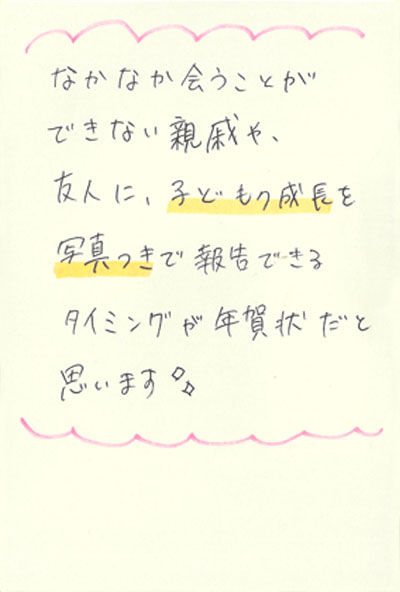 なかなか会うことが
できない親戚や、
友人に、子どもの成長を
写真つきで報告できる
タイミングが年賀状だと
思います